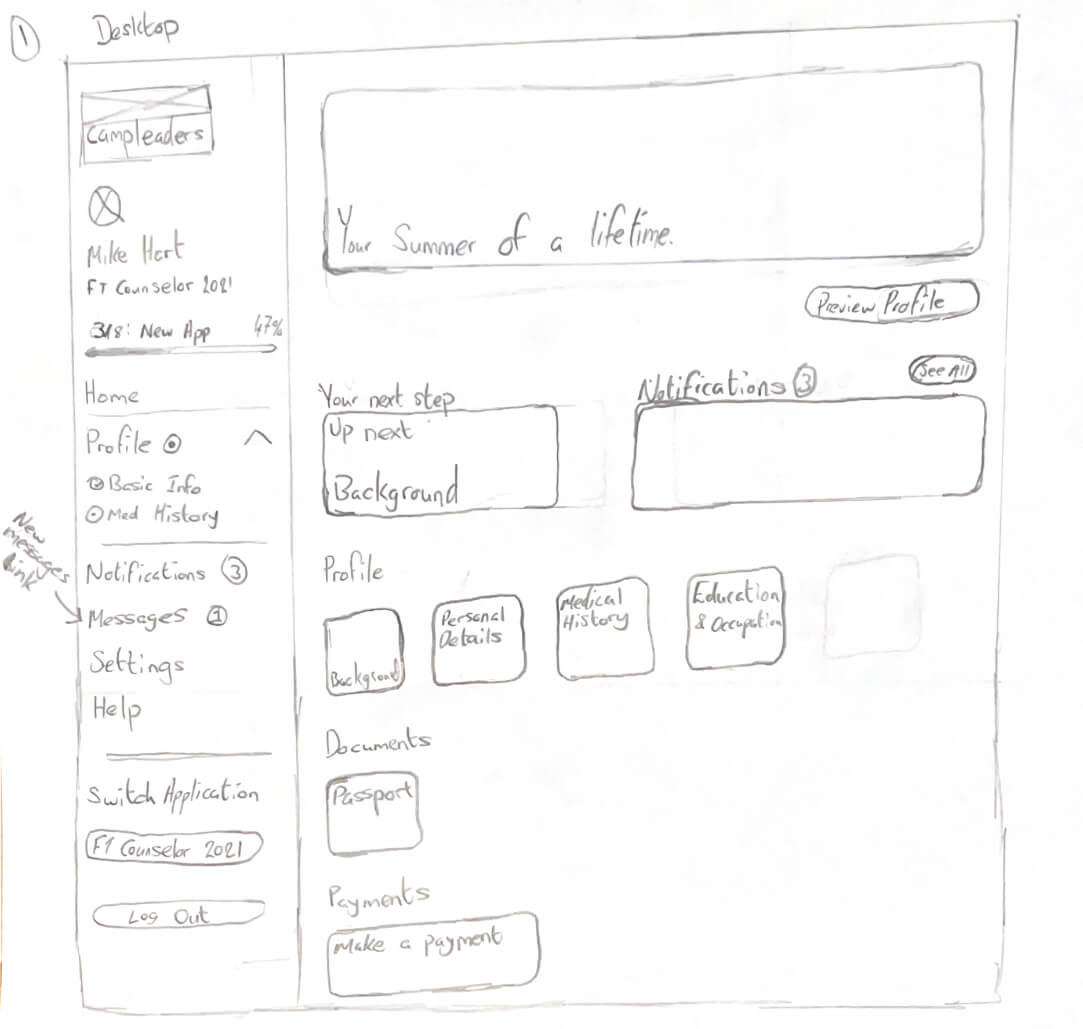 1
Desktop
Campleaders
Mike Hart
FT Counselor 2021
3/8: New App 47%
Home
Profile
Basic Info
Med History
New
messages
link
Notifications 3
Messages 1
Settings
Help
Switch Application
FT Counselor 2021
Log Out
Your Summer of a lifetime.
Preview Profile
Your next step
Up next
Background
Notifications 3
See All
Profile
Background
Personal
Details
Medical
History
Education
& Occupation
Documents
Passport
Payments
Make a payment